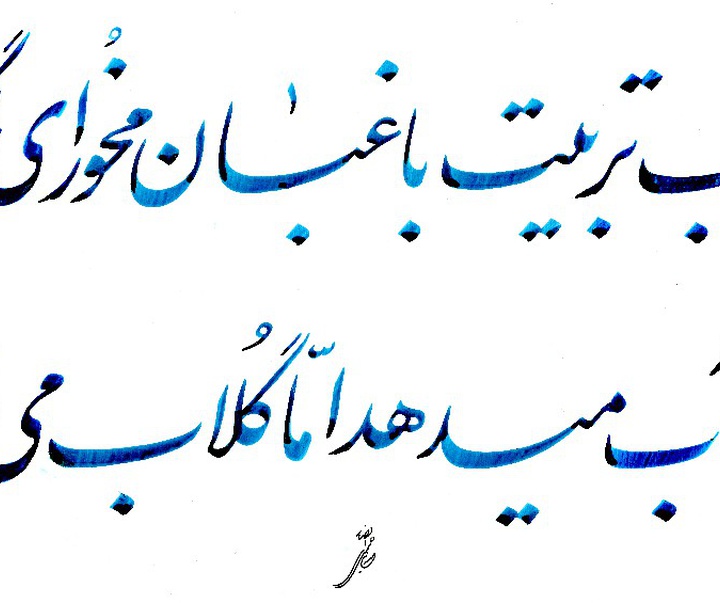 ب تربیت باغبان مخُور ای
ب میدهد امّا گُلاب می